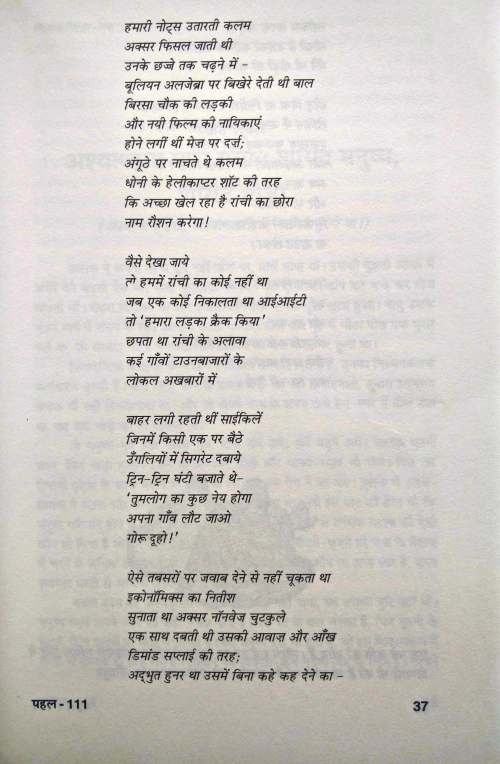 हमारी नोट्स उतारती कलम
अक्सर फिसल जाती थी
उनके छज्जे तक चढ़ने में -
बूलियन अलजेब्रा पर बिखेरे देती थी बाल
बिरसा चौक की लड़की
और नयी फिल्म की नायिकाएं
होने लगीं थीं मेज़ पर दर्ज;
अंगूठे पर नाचते थे कलम
धोनी के हेलीकाप्टर शॉट की तरह
कि अच्छा खेल रहा है रांची का छोरा
नाम रौशन करेगा!
वैसे देखा जाये
तो हममें रांची का कोई नहीं था
जब एक कोई निकालता था आईआईटी
तो 'हमारा लड़का क्रैक किया'
छपता था रांची के अलावा
कई गाँवों टाउनबाजारों के
लोकल अखबारों में
बाहर लगी रहती थीं साईकिलें
जिनमें किसी एक पर बैठे
उँगलियों में सिगरेट दबाये
ट्रिन-ट्रिन घंटी बजाते थे-
'तुमलोग का कुछ नेय होगा
अपना गाँव लौट जाओ
गोरू दूहो!'
ऐसे तबसरों पर जवाब देने से नहीं चूकता था
इकोनॉमिक्स का नितीश
सुनाता था अक्सर नॉनवेज चुटकुले
एक साथ दबती थी उसकी आवाज़ और आँख
डिमांड सप्लाई की तरह;
अद्भुत हुनर था उसमें बिना कहे कह देने का -
पहल - 111
37